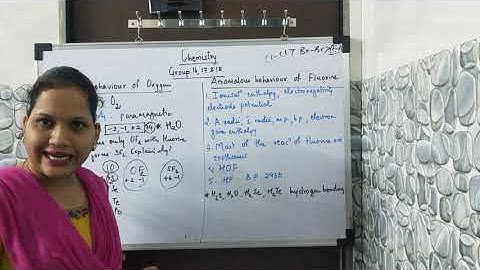 Chemistry
Group 16, 17 & 18
haviour of Oxygen
O2
paramagnetic
-2 -1, +2 H2O
only OF2 with fluorine
SF2 Explain why?
O OF2 SF2
+2 -1 +2 -1
Te
Po
Cl-Cl > Br-Br >
Anomalous behaviour of Fluorine
1. Ionisatn enthalpy, electronegativity
electrode potential
2. A radii, i radii, mp, bp, electron
gain enthalpy
4. Most of the reacn of fluorine are
exothermic
4. HOF
5. HF B.P 293K
H2S, H2O, H2Se, H2Te hydrogen bonding